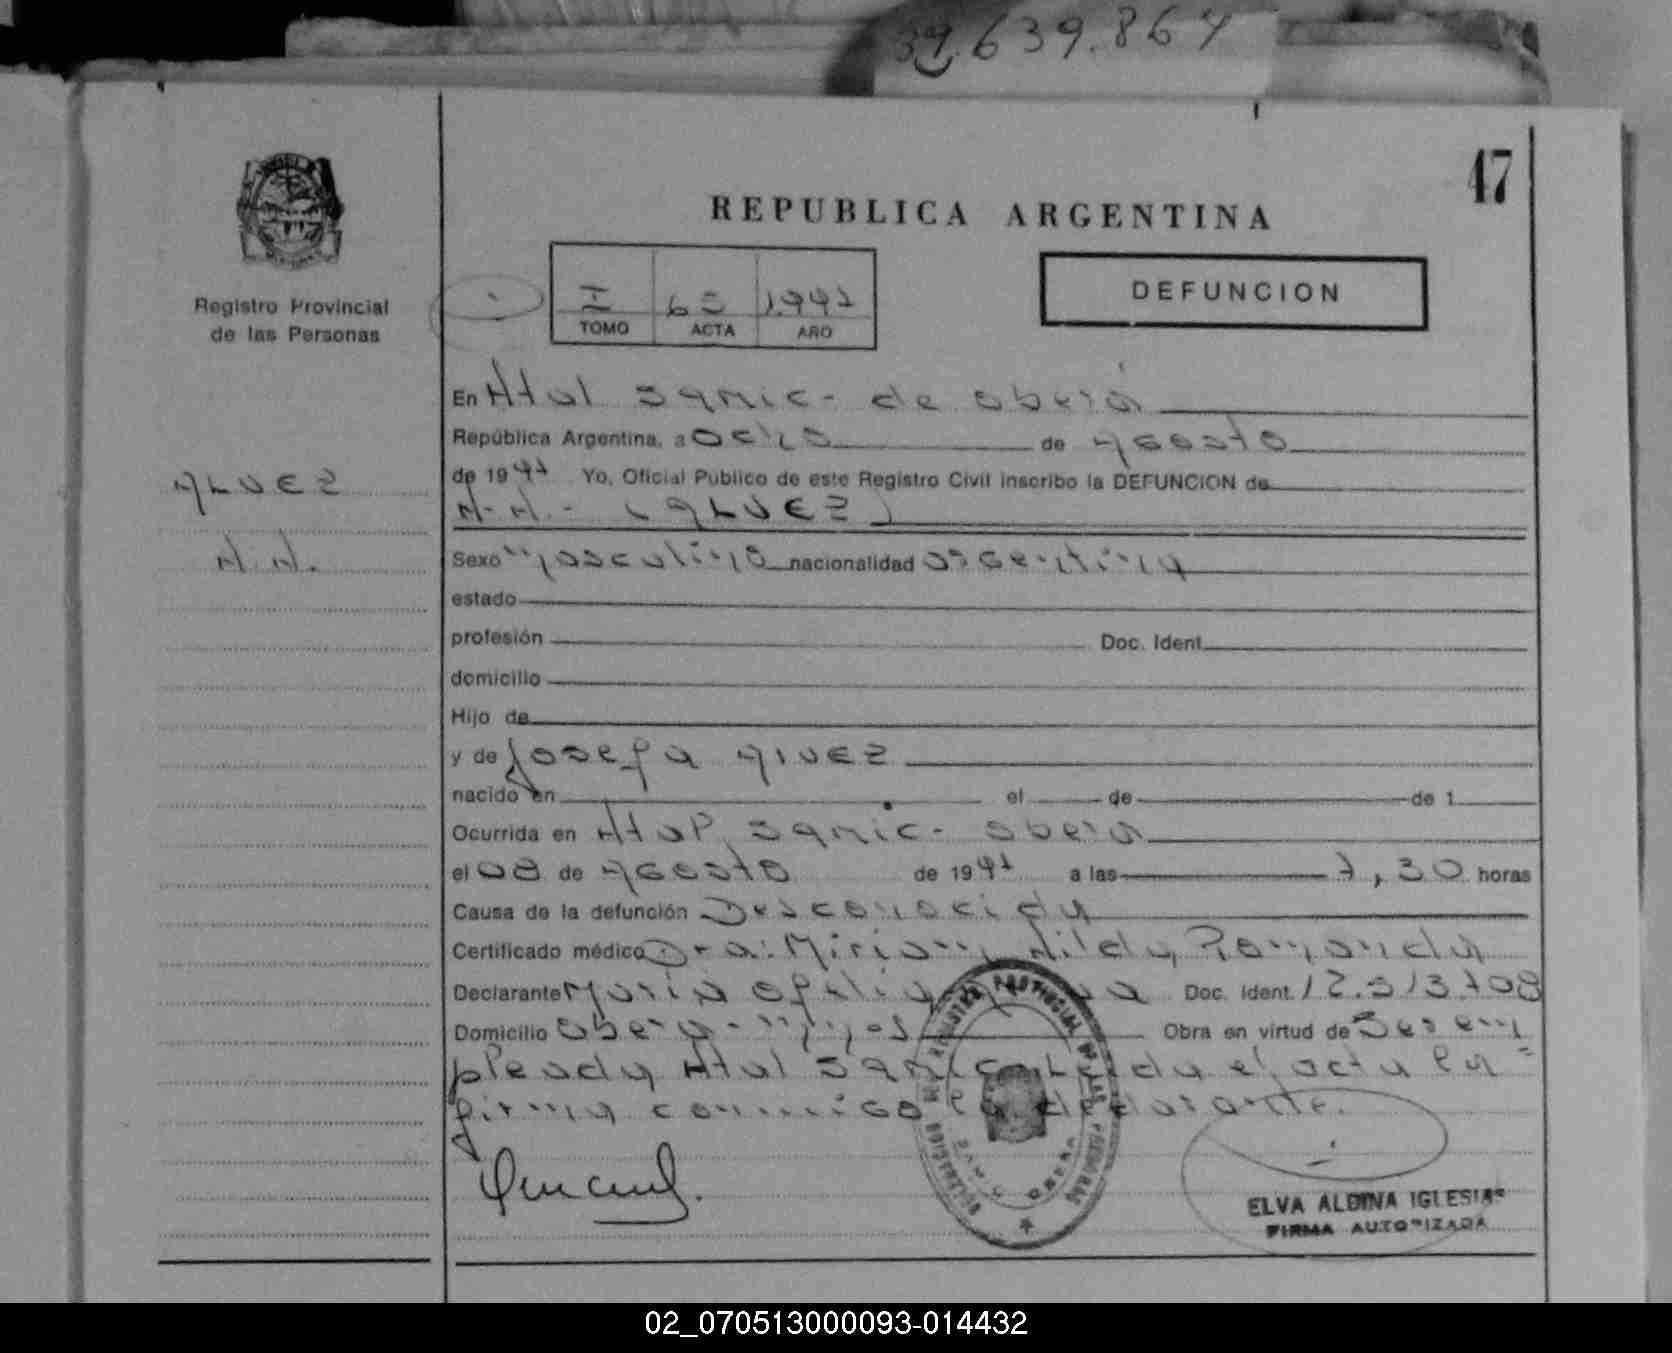 39.639.864
47
REPUBLICA ARGENTINA
Registro Provincial
de las Personas
I 65
TOMO ACTA AÑO
DEFUNCION
En Htal Samic - de oberá
República Argentina, a ocho de Agosto
de 19 Yo, Oficial Público de este Registro Civil inscribo la DEFUNCION de
ALVEZ
N.N.- (ALVEZ)
N.N.
Sexo masculino nacionalidad argentina
estado
profesión Doc. Ident.
domicilio
Hijo de
y de Josefa Alvez
nacido en el de de 1
Ocurrida en Htal Samic - oberá
el 08 de Agosto de 19 a las 7,30 horas
Causa de la defunción Desconocida
Certificado médico Dra: Miriam Hilda
Declarante María ofelia Doc. Ident. 12.313.708
Domicilio oberá - Mnes Obra en virtud de Ser em
pleada Htal Samic Leida el acta la
firma conmigo la declarante.
ELVA ALDINA IGLESIAS
FIRMA AUTORIZADA
02_070513000093-014432